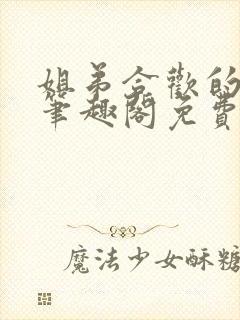 姐弟合歡的
筆趣閣免費
魔法少女酥糖